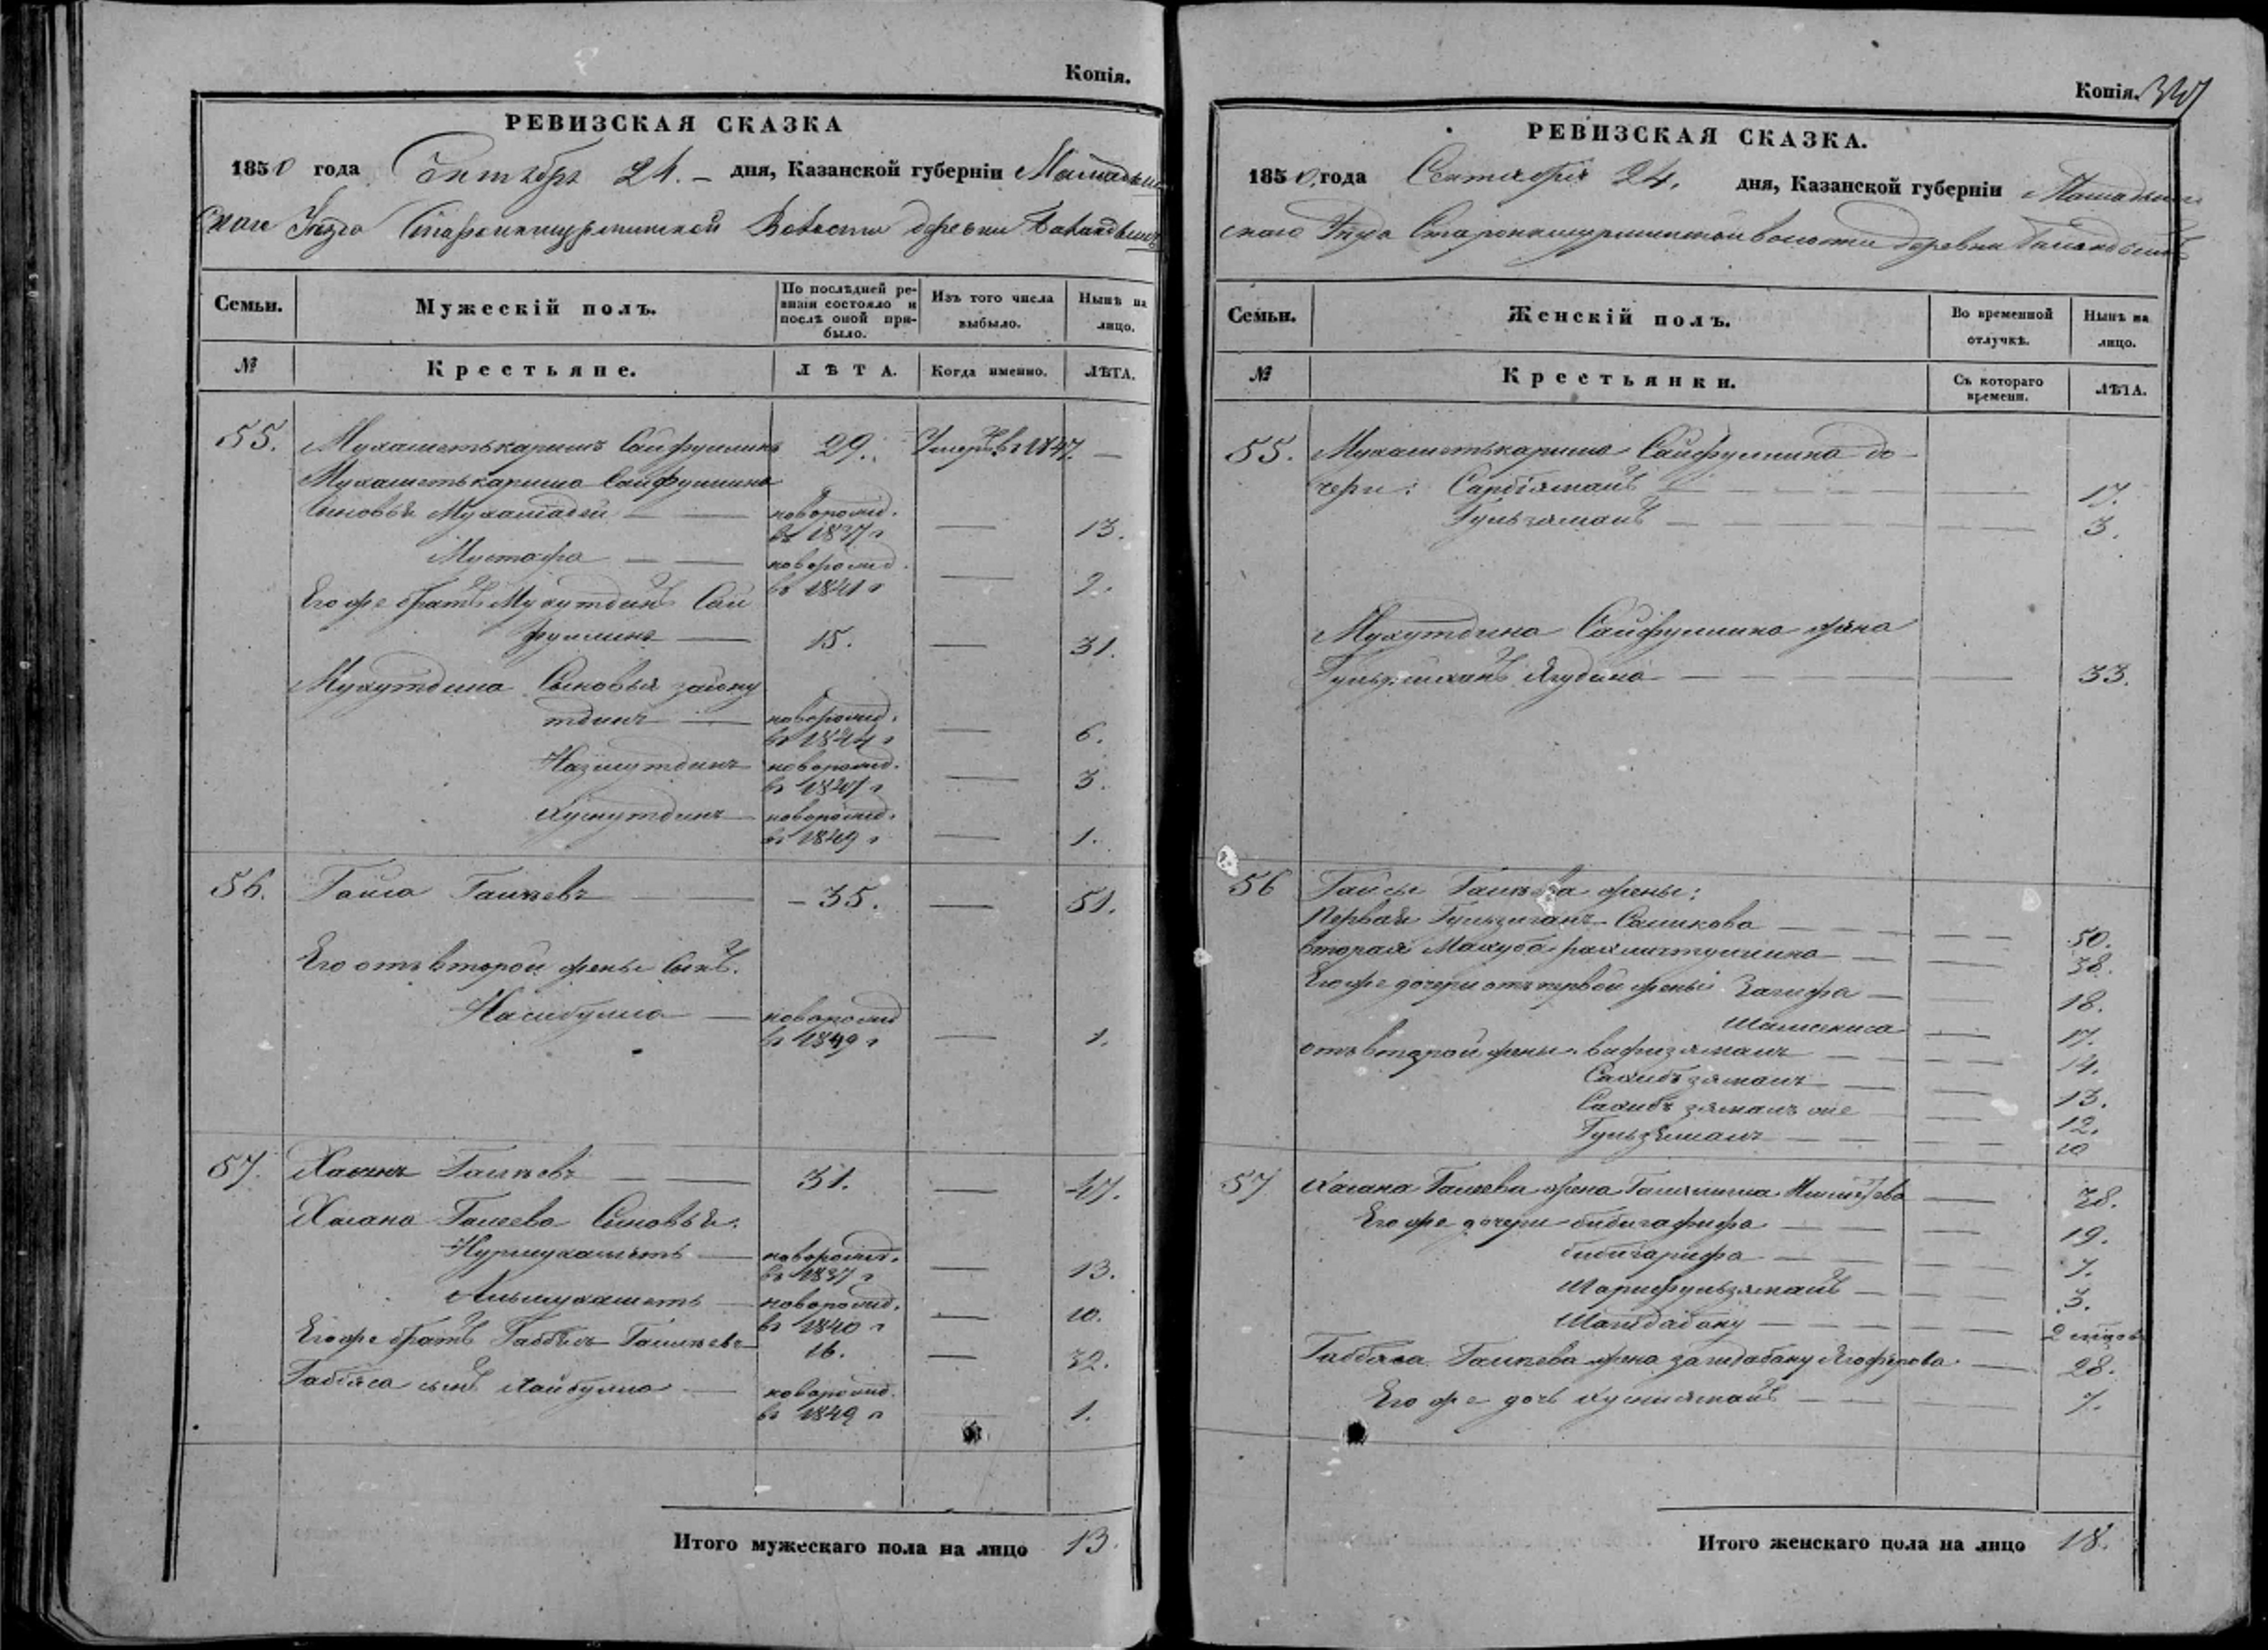 Копія.
РЕВИЗСКАЯ СКАЗКА
1850 года Сентября 24. – дня, Казанской губерніи
скаго Уезда Волости деревни
Семьи.
Мужескій полъ.
По послѣдней ре-
визіи состояло и
послѣ оной при-
было.
Изъ того числа
выбыло.
Нынѣ на
лицо.
№
Крестьяне.
ЛѢТА.
Когда именно.
ЛѢТА.
55. Мухаметькаримъ Сайфуллинъ 29. Умеръ въ 1847. —
Мухаметькарима Сайфуллина
Сыновья новорожд.
въ 1837 г — 13.
Мустафа — — новорожд.
въ 1841 г — 9.
Его же братъ Мухутдинъ Сай
фуллинъ — 15. — 31.
Мухутдина Сыновья Зайну
тдинъ — новорожд.
въ 1844 г — 6.
Назмутдинъ новорожд.
въ 1847 г — 3.
Хуснутдинъ новорожд.
въ 1849 г — 1.
56. Гайса Галеевъ — 35. — 51.
Его отъ второй жены сынъ.
Насибулла — новорожд
въ 1849 г — 1.
57. Хасанъ Галеевъ — — 31. — 47.
Хасана Галеева Сыновья:
Нурмухаметь — новорожд.
въ 1837 г — 13.
Альмухаметь — новорожд.
въ 1840 г — 10.
Его же братъ Габбясъ Галеевъ 16. — 32.
Габбяса сынъ Хайбулла — новорожд.
въ 1849 г — 1.
Итого мужескаго пола на лицо 13.
Копія.
РЕВИЗСКАЯ СКАЗКА.
1850 года Сентября 24. дня, Казанской губерніи
скаго Уезда волости деревни
Семьи.
Женскій полъ.
Во временной
отлучкѣ.
Нынѣ на
лицо.
№
Крестьянки.
Съ котораго
времени.
ЛѢТА.
55. Мухаметькарима Сайфуллина до-
чери: Сарбіямалъ — 17.
Гульзямалъ — 3.
Мухутдина Сайфуллина жена
Ягудина — 33.
56 Гайсы Галеева жены:
Первая Салихова — 50.
вторая Махуба Рахматуллина — 38.
Его же дочери отъ первой жены Загифа — 18.
— 17.
отъ второй жены Вафизямалъ — 14.
Сахибъзямалъ — 13.
Сахибъзямалъ же — 12.
Гульзямалъ — 10
57 Хасана Галеева жена — 38.
Его же дочери Бибигафифа — 19.
Бибигарифа — 7.
Шарифульзямалъ — 3.
— 2
Габбяса Галеева жена — 28.
Его же дочь Хуснизямалъ — 7.
Итого женскаго пола на лицо 18.